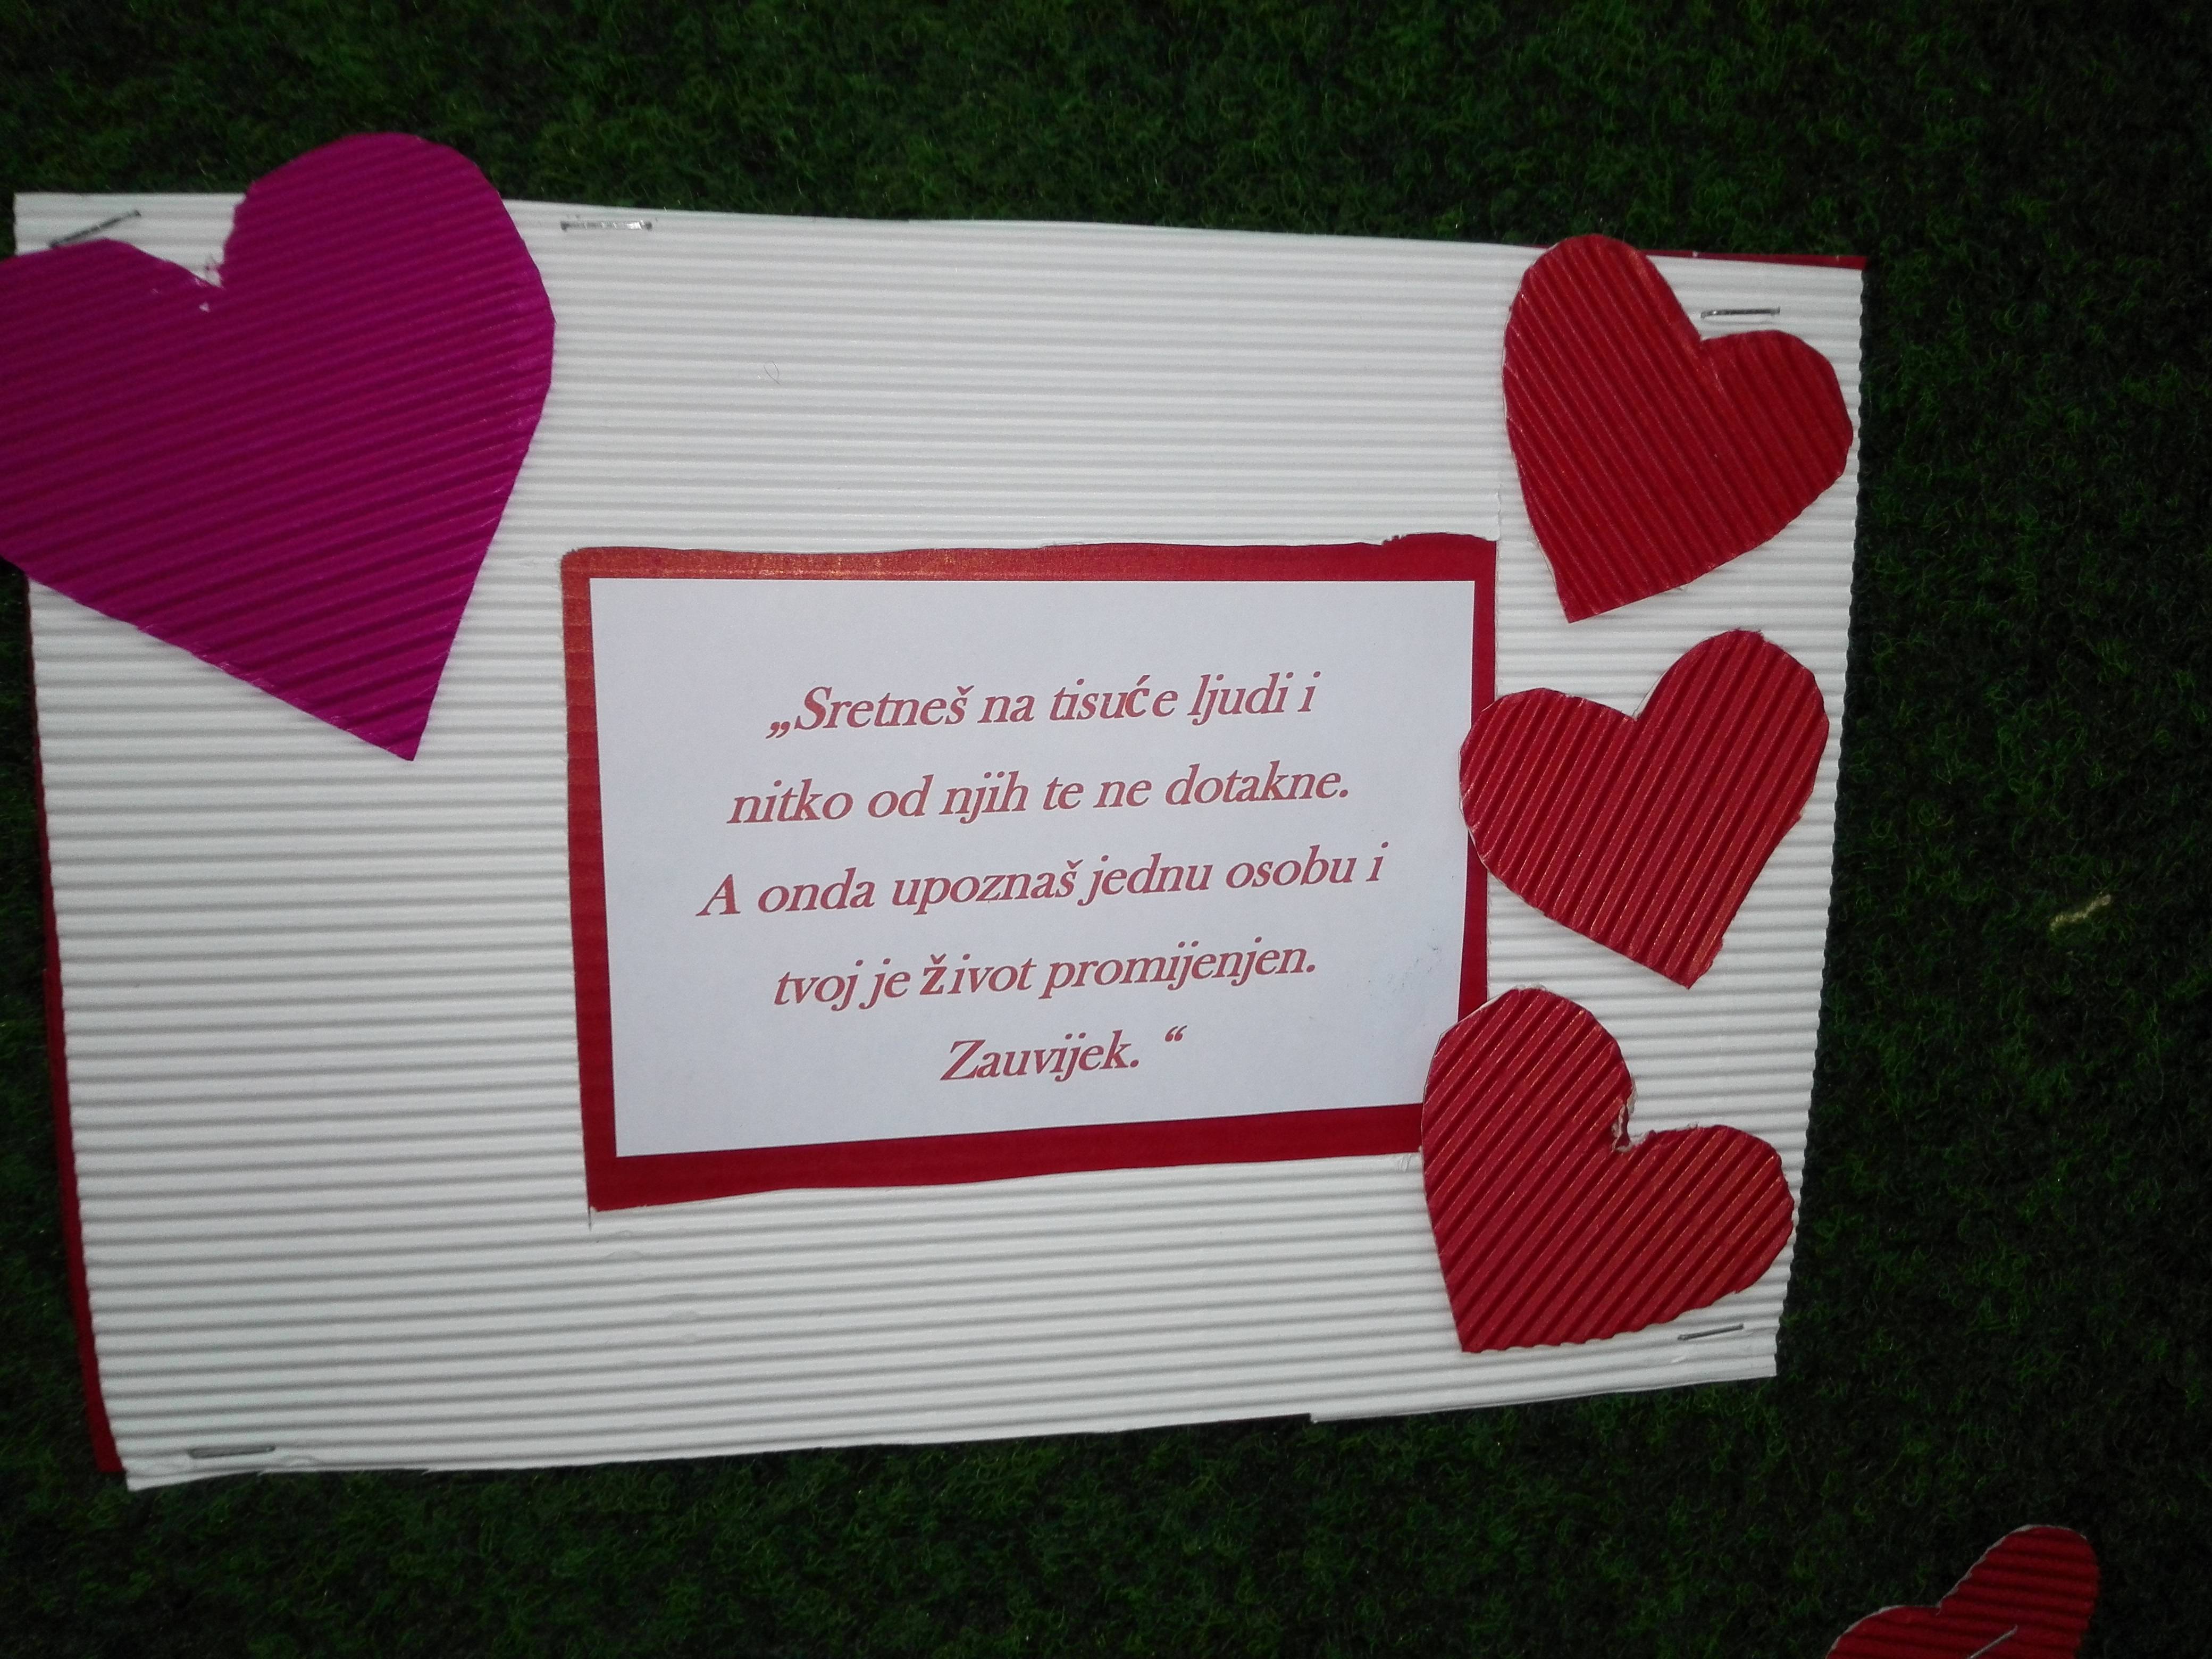 „Sretneš na tisuće ljudi i
nitko od njih te ne dotakne.
A onda upoznaš jednu osobu i
tvoj je život promijenjen.
Zauvijek. “